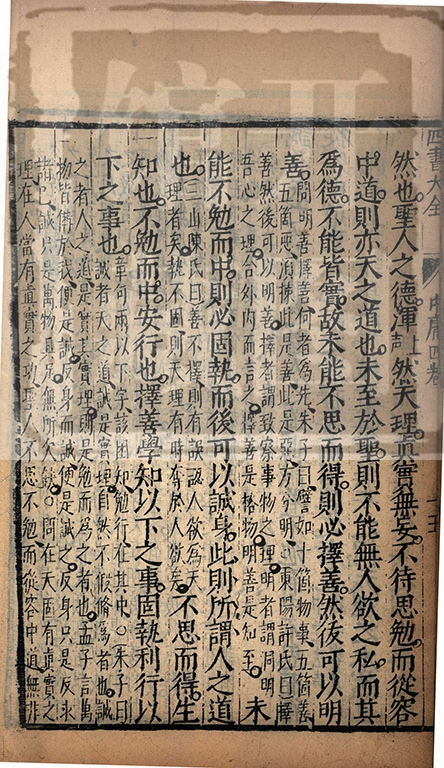 四書大全 中庸四卷 十五
然也聖人之德渾上然天理眞實無妄不待思勉而從容
中道則亦天之道也未至於聖則不能無人欲之私而其
爲德不能皆實故未能不思而得則必擇善然後可以明
善
問明善擇善何者爲先朱子曰譬如十箇物事五箇善
五箇惡須揀此是善此是惡方分明○東陽許氏曰擇
善然後可以明善擇者謂致察事物之理明者謂洞明
吾心之理合外内而言之擇善是格物明善是知至
未
能不勉而中則必固執而後可以誠身此則所謂人之道
也
三山陳氏曰善不擇則有誤認人欲爲天
理者矣執不固則天理有時奪於人欲矣
不思而得生
知也不勉而中安行也擇善學知以下之事固執利行以
下之事也
章句兩以下字該困知勉行在其中○朱子曰
誠者天之道誠是實理自然不假修爲者也誠
之者人之道是實其實理則是勉而爲之者也孟子言萬
物皆備於我便是誠反身而誠便是誠之反身只是反求
諸己誠只是萬物具足無所欠缺○問在天固有眞實之
理在人當有眞實之功聖人不思不勉而從容中道無非